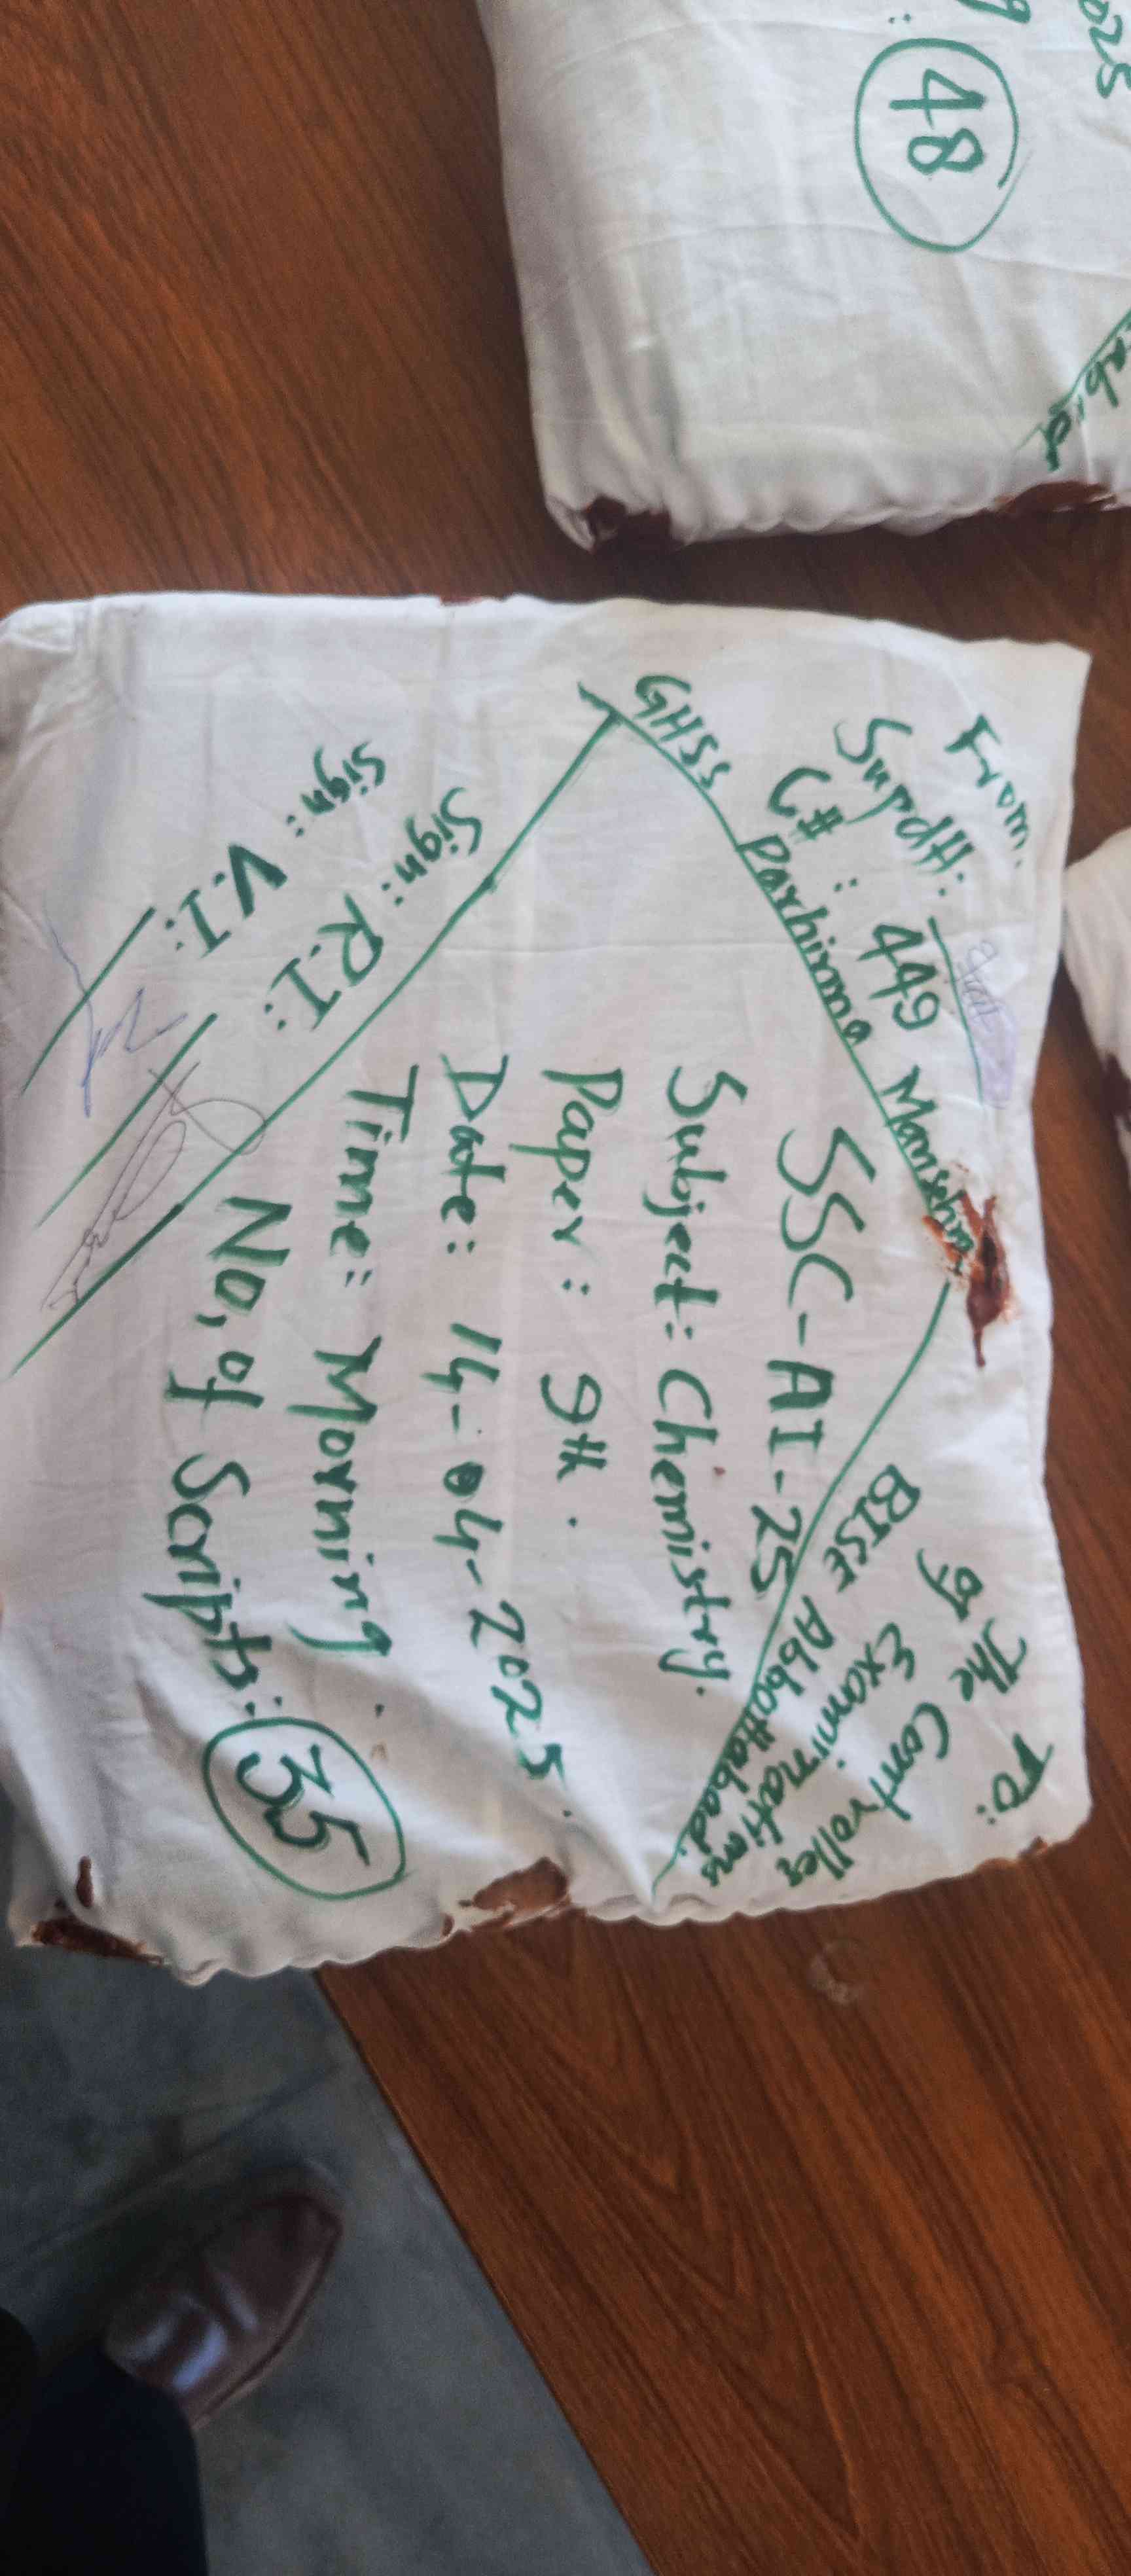 From.
Supdtt:
C# : 449
GHSS Parhinna Mansehra
To:
The Controller
of Examinations
BISE Abbottabad.
SSC-AI-25
Subject: Chemistry.
Paper: 9th.
Date: 14-04-2025.
Time: Morning.
No, of Scripts: 35
Sign: R.I:
Sign: V.I:
48